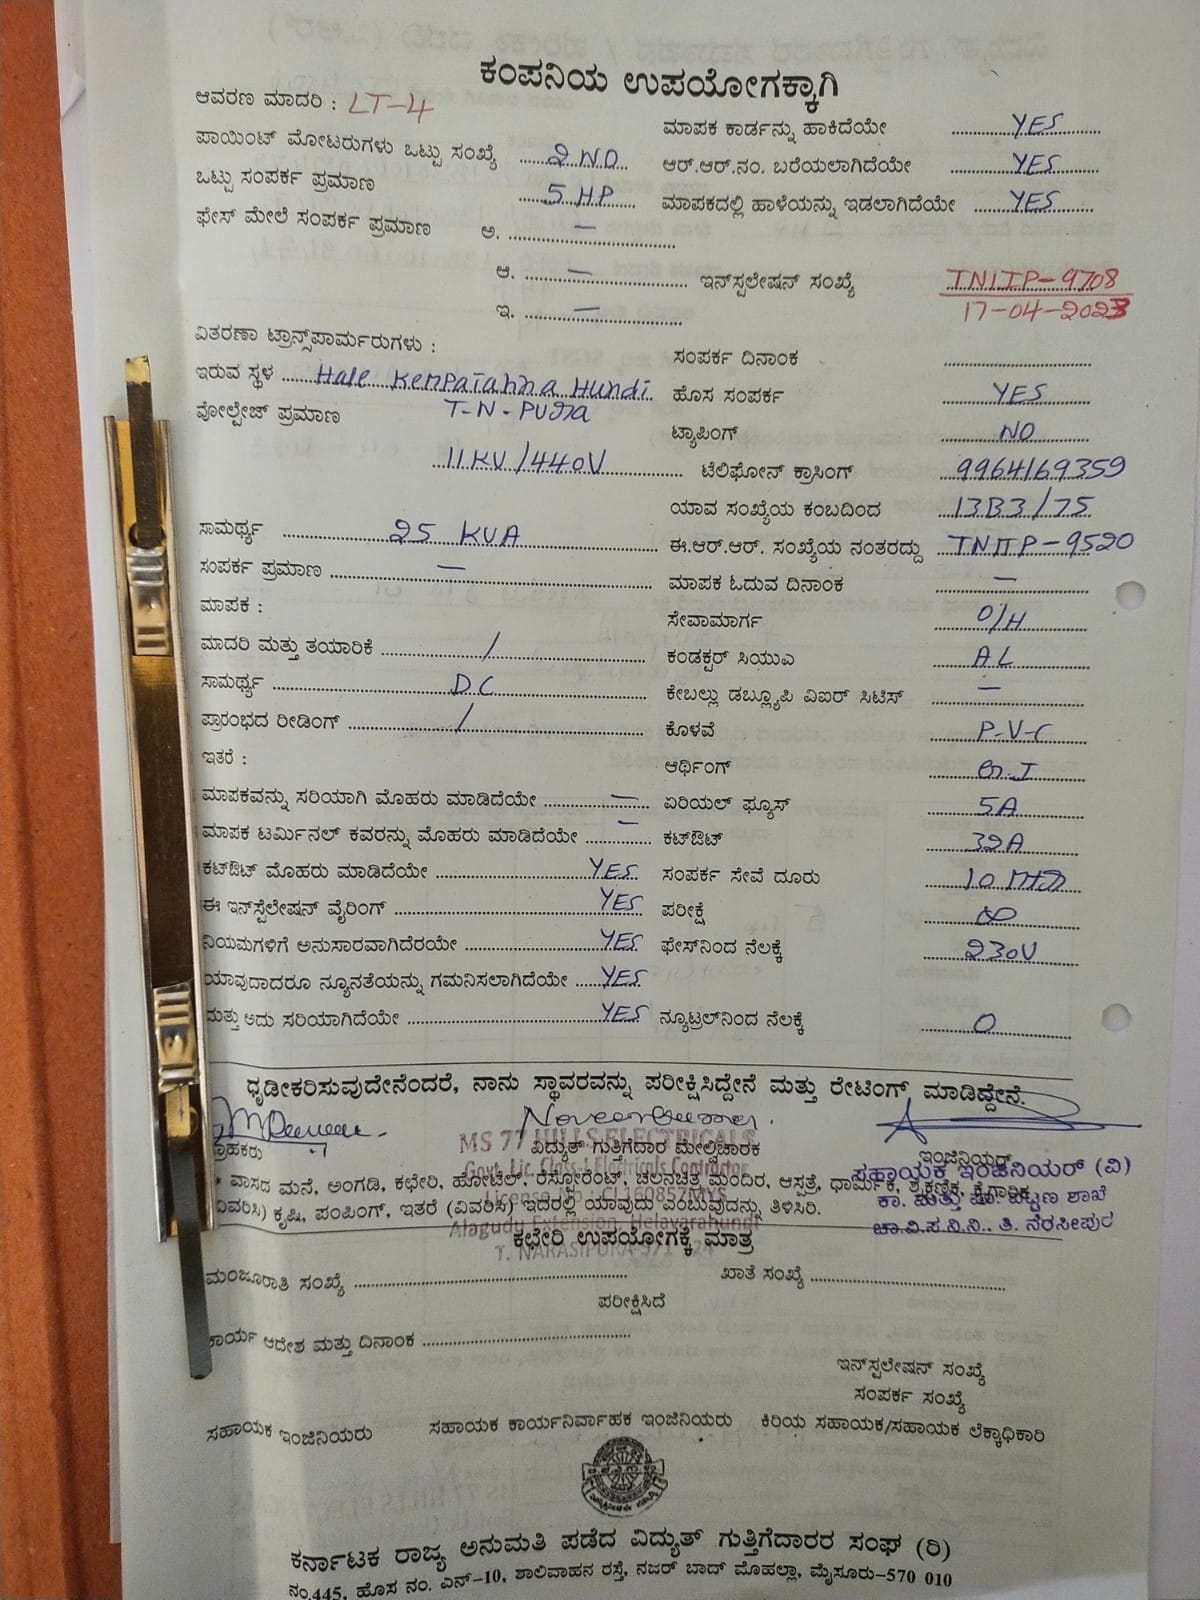 ಕಂಪನಿಯ ಉಪಯೋಗಕ್ಕಾಗಿ
ಆವರಣ ಮಾದರಿ : LT-4
ಮಾಪಕ ಕಾರ್ಡನ್ನು ಹಾಕಿದೆಯೇ YES
ಪಾಯಿಂಟ್ ಮೋಟರುಗಳು ಒಟ್ಟು ಸಂಖ್ಯೆ 2 NO
ಆರ್.ಆರ್.ನಂ. ಬರೆಯಲಾಗಿದೆಯೇ YES
ಒಟ್ಟು ಸಂಪರ್ಕ ಪ್ರಮಾಣ 5 HP
ಮಾಪಕದಲ್ಲಿ ಹಾಳೆಯನ್ನು ಇಡಲಾಗಿದೆಯೇ YES
ಫೇಸ್ ಮೇಲೆ ಸಂಪರ್ಕ ಪ್ರಮಾಣ ಅ. —
ಆ. — ಇನ್‌ಸ್ಪಲೇಷನ್ ಸಂಖ್ಯೆ TNIIP-9708
17-04-2023
ಇ. —
ವಿತರಣಾ ಟ್ರಾನ್ಸ್‌ಪಾರ್ಮರುಗಳು :
ಸಂಪರ್ಕ ದಿನಾಂಕ
ಇರುವ ಸ್ಥಳ Hale Kempaiahna Hundi
ಹೊಸ ಸಂಪರ್ಕ YES
ವೋಲ್ಟೇಜ್ ಪ್ರಮಾಣ T-N-Pura
ಟ್ಯಾಪಿಂಗ್ NO
11KV/440V ಟೆಲಿಫೋನ್ ಕ್ರಾಸಿಂಗ್ 9964169359
ಯಾವ ಸಂಖ್ಯೆಯ ಕಂಬದಿಂದ 13B3/75
ಸಾಮರ್ಥ್ಯ 25 KVA
ಈ.ಆರ್.ಆರ್. ಸಂಖ್ಯೆಯ ನಂತರದ್ದು TNIIP-9520
ಸಂಪರ್ಕ ಪ್ರಮಾಣ —
ಮಾಪಕ ಓದುವ ದಿನಾಂಕ —
ಮಾಪಕ :
ಸೇವಾಮಾರ್ಗ O/H
ಮಾದರಿ ಮತ್ತು ತಯಾರಿಕೆ /
ಕಂಡಕ್ಟರ್ ಸಿಯುಎ AL
ಸಾಮರ್ಥ್ಯ DC
ಕೇಬಲ್ಲು ಡಬ್ಲ್ಯೂಪಿ ವಿಐರ್ ಸಿಟಿಸ್ —
ಪ್ರಾರಂಭದ ರೀಡಿಂಗ್ /
ಕೊಳವೆ P-V-C
ಇತರೆ :
ಆರ್ಥಿಂಗ್ G.I
ಮಾಪಕವನ್ನು ಸರಿಯಾಗಿ ಮೊಹರು ಮಾಡಿದೆಯೇ —
ಏರಿಯಲ್ ಫ್ಯೂಸ್ 5A
ಮಾಪಕ ಟರ್ಮಿನಲ್ ಕವರನ್ನು ಮೊಹರು ಮಾಡಿದೆಯೇ —
ಕಟ್‌ಔಟ್ 32A
ಕಟ್‌ಔಟ್ ಮೊಹರು ಮಾಡಿದೆಯೇ YES
ಸಂಪರ್ಕ ಸೇವೆ ದೂರು 10 Mtr
ಈ ಇನ್‌ಸ್ಪೆಲೇಷನ್ ವೈರಿಂಗ್ YES
ಪರೀಕ್ಷೆ ∞
ನಿಯಮಗಳಿಗೆ ಅನುಸಾರವಾಗಿದೆರಯೇ YES
ಫೇಸ್‌ನಿಂದ ನೆಲಕ್ಕೆ 230V
ಯಾವುದಾದರೂ ನ್ಯೂನತೆಯನ್ನು ಗಮನಿಸಲಾಗಿದೆಯೇ YES
ಮತ್ತು ಅದು ಸರಿಯಾಗಿದೆಯೇ YES
ನ್ಯೂಟ್ರಲ್‌ನಿಂದ ನೆಲಕ್ಕೆ 0
ಧೃಡೀಕರಿಸುವುದೇನೆಂದರೆ, ನಾನು ಸ್ಥಾವರವನ್ನು ಪರೀಕ್ಷಿಸಿದ್ದೇನೆ ಮತ್ತು ರೇಟಿಂಗ್ ಮಾಡಿದ್ದೇನೆ.
MS 77 HILLS ELECTRICALS
ಗ್ರಾಹಕರು ವಿದ್ಯುತ್ ಗುತ್ತಿಗೆದಾರ ಮೇಲ್ವಿಚಾರಕ ಇಂಜಿನಿಯರ್
ಸಹಾಯಕ ಇಂಜಿನಿಯರ್ (ವಿ)
Govt. Lic. Class-I Electricals Contractor
* ವಾಸದ ಮನೆ, ಅಂಗಡಿ, ಕಛೇರಿ, ಹೋಟೆಲ್, ರೆಸ್ಟೋರೆಂಟ್, ಚಲನಚಿತ್ರ ಮಂದಿರ, ಆಸ್ಪತ್ರೆ, ಧಾರ್ಮಿಕ, ಶೈಕ್ಷಣಿಕ, ಕೈಗಾರಿಕ
ಕಾ. ಮತ್ತು ಪಾ. ಪಟ್ಟಣ ಶಾಖೆ
License No. CL160857MYS
(ವಿವರಿಸಿ) ಕೃಷಿ, ಪಂಪಿಂಗ್, ಇತರೆ (ವಿವರಿಸಿ) ಇದರಲ್ಲಿ ಯಾವುದು ಎಂಬುವುದನ್ನು ತಿಳಿಸಿರಿ.
ಚಾ.ವಿ.ಸ.ನಿ.ನಿ., ತಿ. ನರಸೀಪುರ
Alagudu Extension, Helavarahundi
ಕಛೇರಿ ಉಪಯೋಗಕ್ಕೆ ಮಾತ್ರ
T. NARASIPURA-571 124
ಮಂಜೂರಾತಿ ಸಂಖ್ಯೆ ಖಾತೆ ಸಂಖ್ಯೆ
ಪರೀಕ್ಷಿಸಿದೆ
ಕಾರ್ಯ ಆದೇಶ ಮತ್ತು ದಿನಾಂಕ
ಇನ್‌ಸ್ಪಲೇಷನ್ ಸಂಖ್ಯೆ
ಸಂಪರ್ಕ ಸಂಖ್ಯೆ
ಸಹಾಯಕ ಇಂಜಿನಿಯರು ಸಹಾಯಕ ಕಾರ್ಯನಿರ್ವಾಹಕ ಇಂಜಿನಿಯರು ಕಿರಿಯ ಸಹಾಯಕ/ಸಹಾಯಕ ಲೆಕ್ಕಾಧಿಕಾರಿ
ಕರ್ನಾಟಕ ರಾಜ್ಯ ಅನುಮತಿ ಪಡೆದ ವಿದ್ಯುತ್ ಗುತ್ತಿಗೆದಾರರ ಸಂಘ (ರಿ)
ನಂ.445, ಹೊಸ ನಂ. ಎನ್-10, ಶಾಲಿವಾಹನ ರಸ್ತೆ, ನಜರ್ ಬಾದ್ ಮೊಹಲ್ಲಾ, ಮೈಸೂರು-570 010